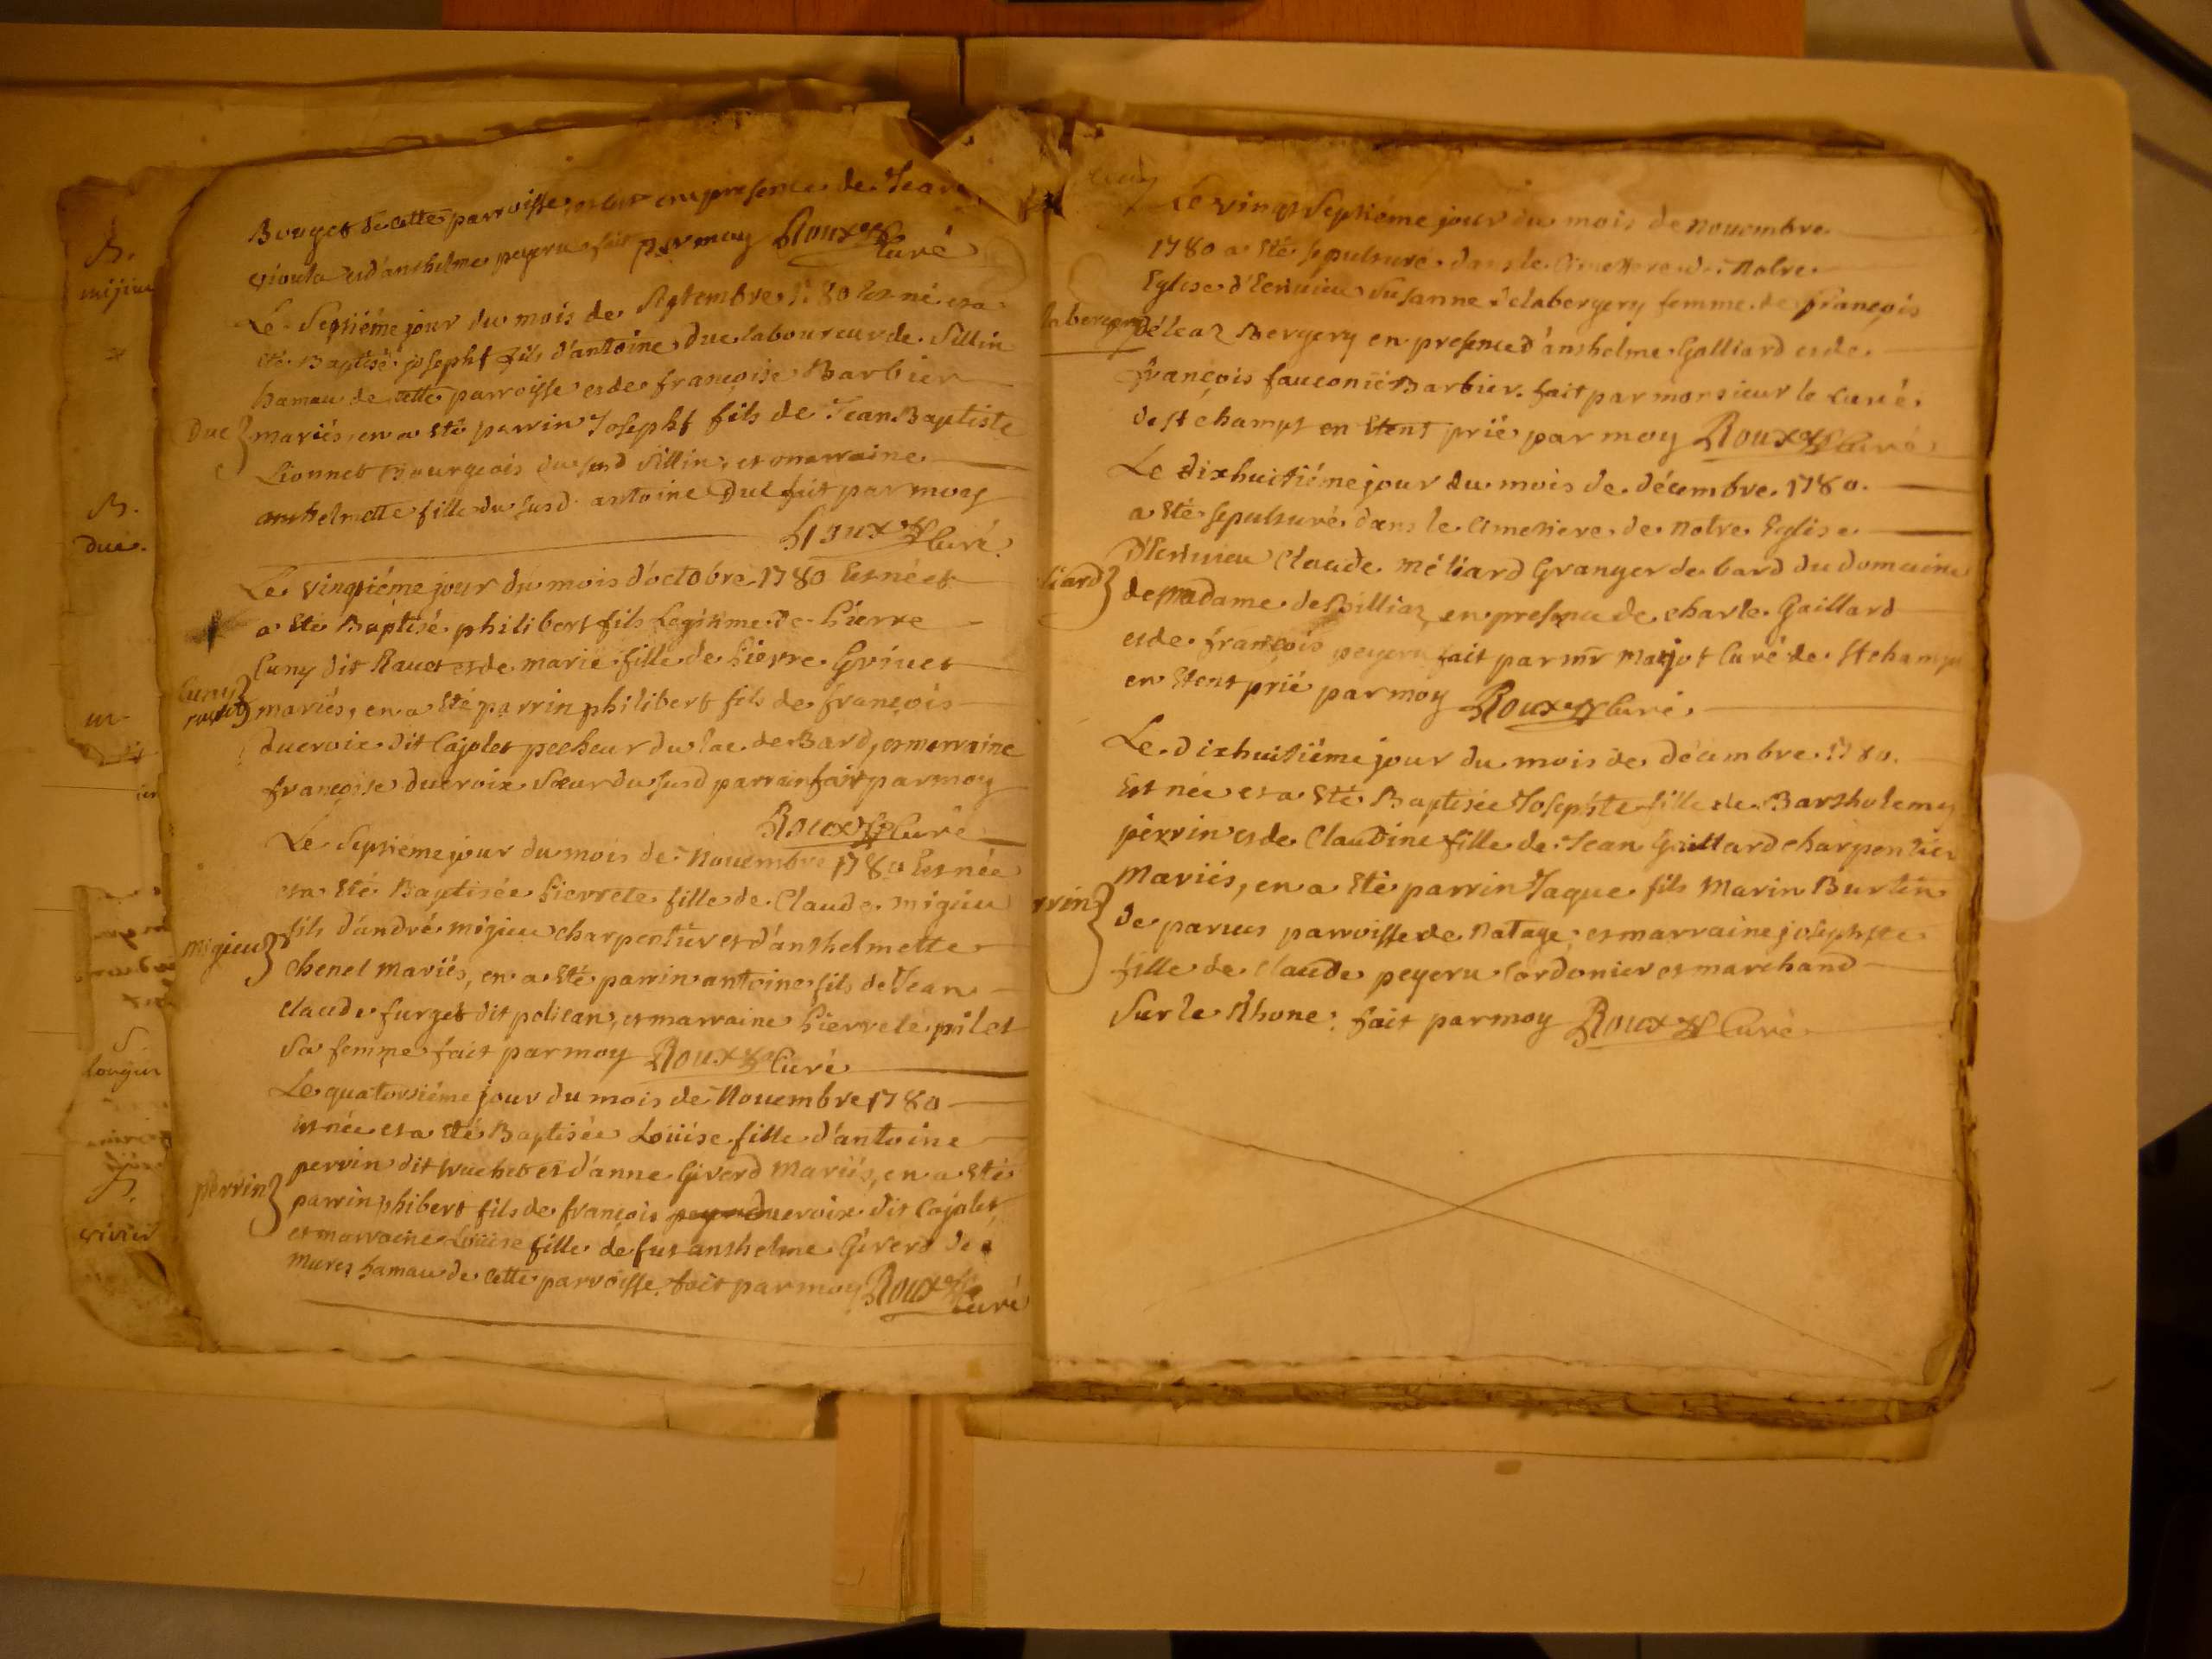 Bouget de cette parroisse, en presence de Jean
viouta et d'anthelme peyru fait par moy Roux Curé
Le Septiéme jour du mois de Septembre 1780 Est né et a
été Baptisé josepht fils d'antoine Duc laboureur de Sillin
hamau de cette parroisse et de françoise Barbier
Duc mariés, en a Eté parrin Josepht fils de Jean Baptiste
Lionnet Bourgeois du susd Sillin, et marraine
anthelmette fille du susd. antoine Duc fait par moy
Roux Curé
Le vingtiéme jour du mois d'octobre 1780 Est né et
a Eté Baptisé philibert fils Legitime de Pierre
Cuny dit Rauet et de marie fille de Pierre Grinet
Cuny rauet mariés, en a Eté parrin philibert fils de françois
ducroix dit Cajolet pecheur du lac de Bard, et marraine
françoise ducroix Sœur du susd parrain fait par moy
Roux Curé
Le Septiéme jour du mois de Nouembre 1780 Est née
et a Eté Baptisée Pierrete fille de Claude migieu
fils d'andré migieu charpentier et d'anthelmette
migieu chenel mariés, en a Eté parrin antoine fils de Jean
claude furget dit polican, et marraine Pierrete pilet
Sa femme fait par moy Roux Curé
Le quatorsiéme jour du mois de Nouembre 1780
Est née et a Eté Baptisée Louise fille d'antoine
perrin dit trachet et d'anne Giverd Mariés, en a Eté
perrin parrin phibert fils de françois ducroix dit Cajolet
et marraine Louise fille de fut anthelme Giverd de
mures hamau de cette parroisse. fait par moy Roux Curé
Le vingt Septiéme jour du mois de nouembre
1780 a Eté sepulturé dans le Cimettere de Notre
Eglise Susanne Delabergery femme de François
labergery Déléaz Bergery en presence d'anthelme Galliard et de
François fauconié Barbier. fait par monsieur le Curé
de st champt en Etent prié par moy Roux Curé
Le dixhuitiéme jour du mois de décembre 1780.
a Eté sepulturé dans le Cimetiere de Notre Eglise
Claude méliard Granger de bard du domaine
liard de madame de Billiaz, en presence de charle Gaillard
et de françois peyeru fait par mr Marjot Curé de St champt
en Etent prié par moy Roux Curé
Le dixhuitiéme jour du mois de décembre 1780.
Est née et a Eté Baptisée Josephte fille de Bartholemy
perrin et de Claudine fille de Jean Gaillard charpentier
Mariés, en a Eté parrin Jaque fils Marin Burtin
rrin de parues parroisse de Natage; et marraine josephte
fille de Claude peyeru Cordonier et marchand
Sur le Rhone. fait par moy Roux Curé